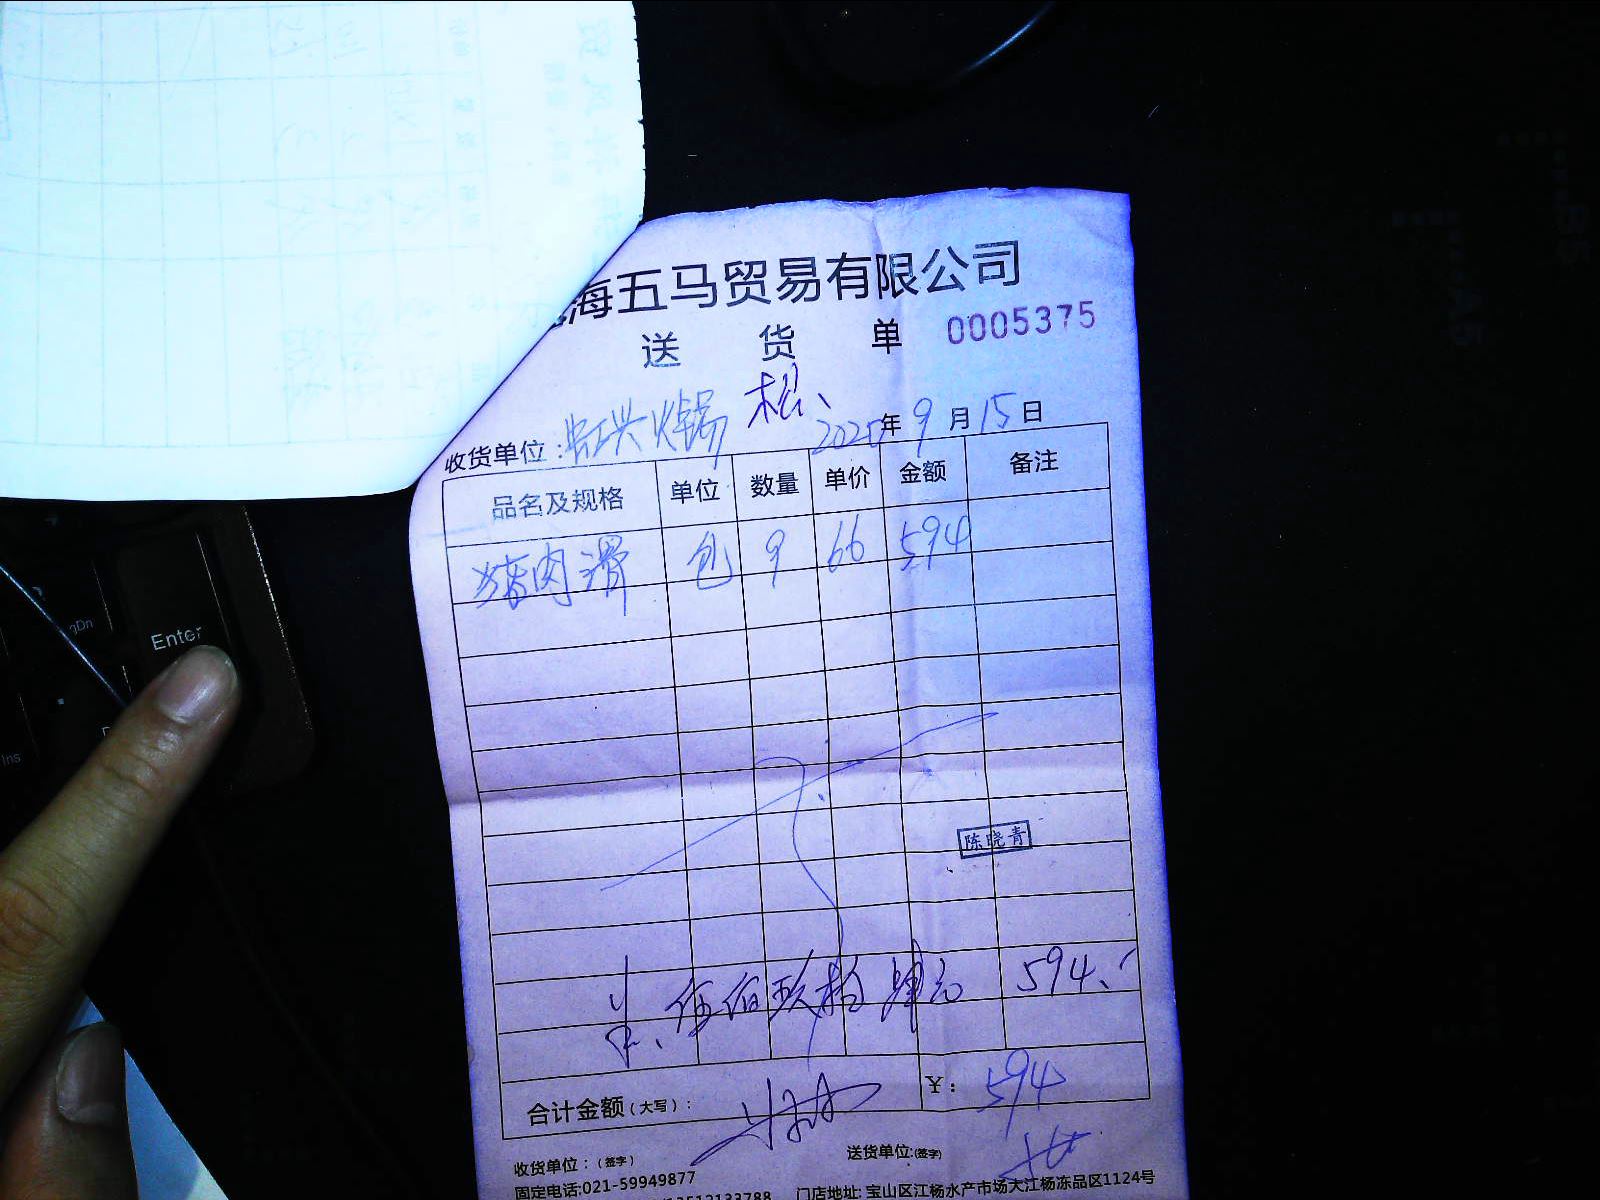 海五马贸易有限公司
送 货 单 0005375
收货单位: 兴火锅 松、
2025年9月15日
品名及规格 单位 数量 单价 金额 备注
猪肉滑 包 9 66 594
陈晓青
伍佰玖拾肆元 594.
合计金额(大写): ¥: 594
收货单位:(签字) 送货单位:(签字)
固定电话:021-59949877
13512133788 门店地址: 宝山区江杨水产市场大江杨冻品区1124号
Enter
gDn
Ins